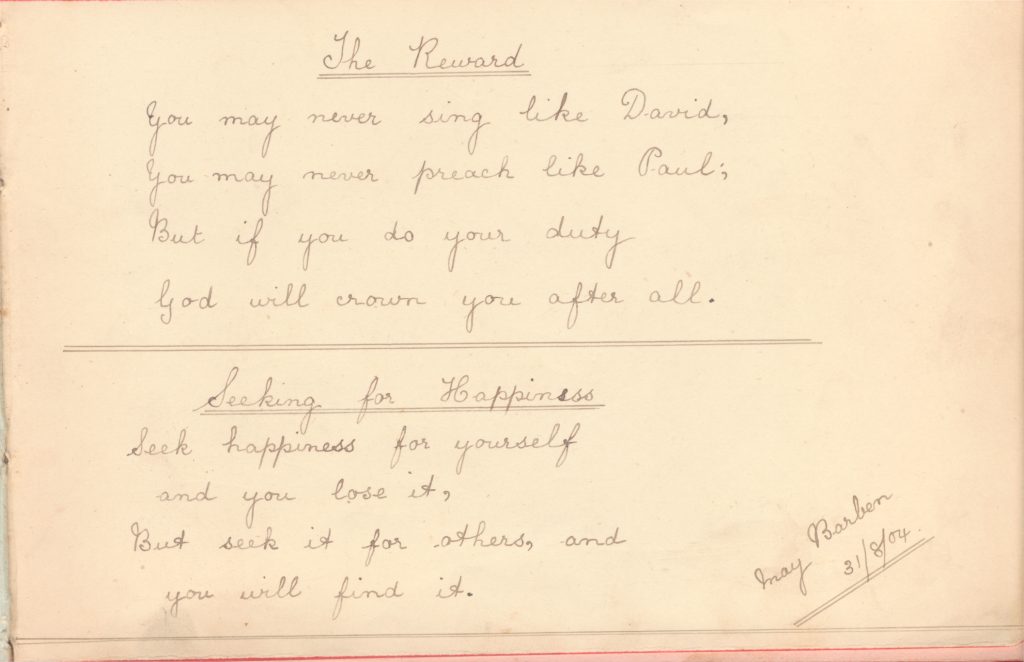 The Reward
You may never sing like David,
You may never preach like Paul;
But if you do your duty
God will crown you after all.
Seeking for Happiness
Seek happiness for yourself
and you lose it,
But seek it for others, and
you will find it.
May Barben
31/8/04.